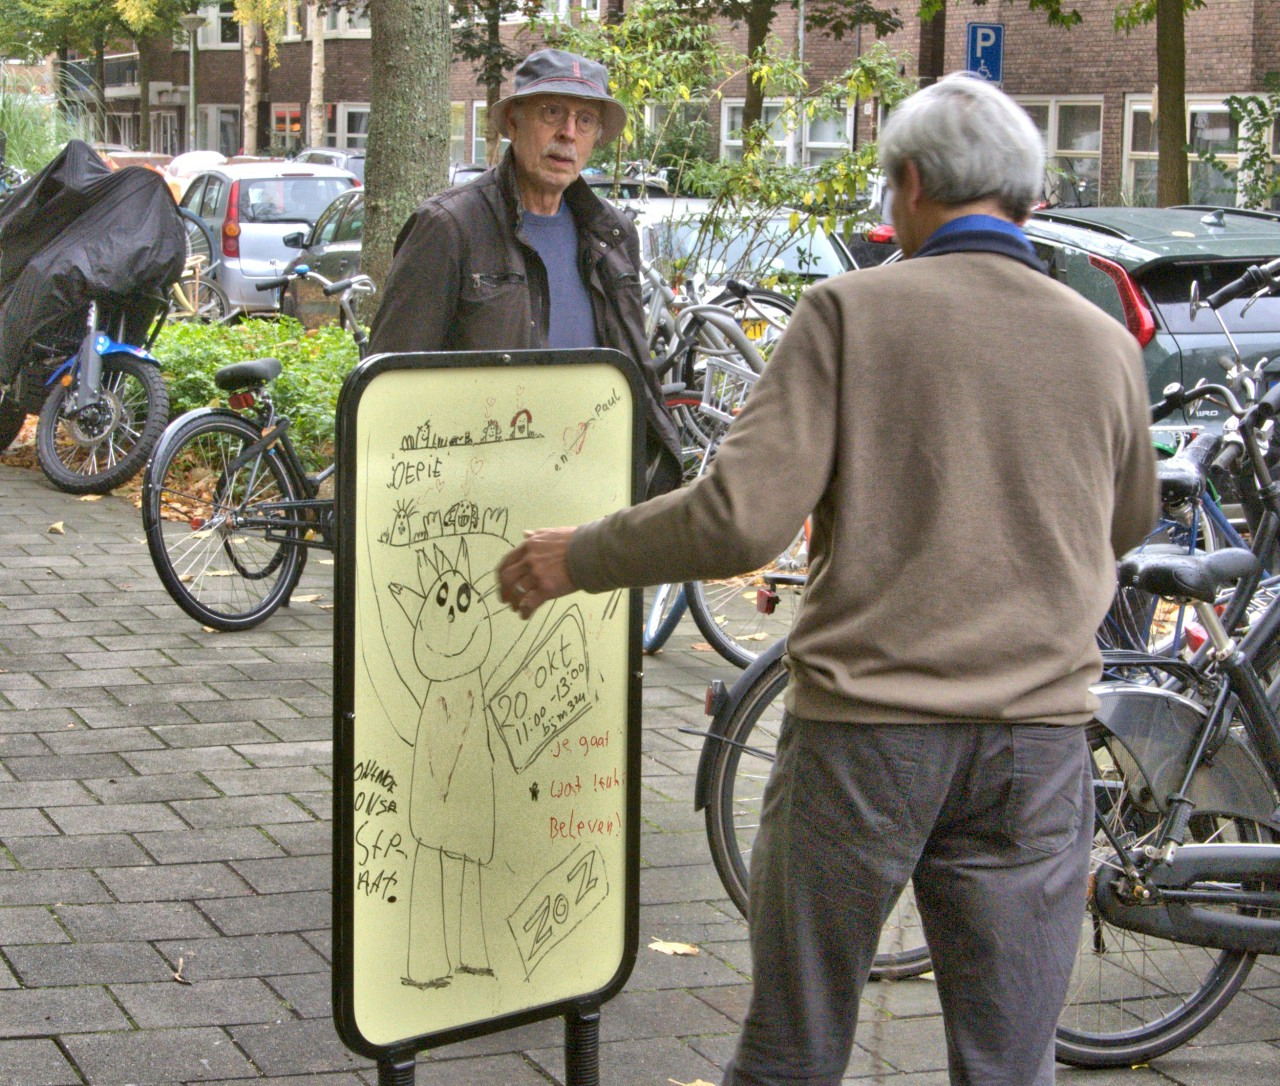 en Paul
20 okt
11:00 - 13:00
bij m 324
Je gaat
wat leuk
Beleven!
ONTMOE
ONSE
STR
AAT.
ZOZ
P